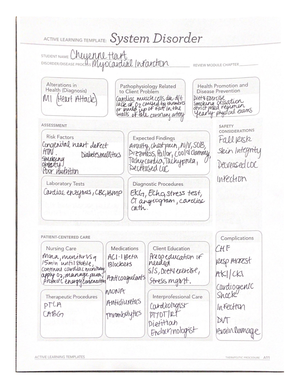 ACTIVE LEARNING TEMPLATE: System Disorder
STUDENT NAME Cheyenne Hart
DISORDER/DISEASE PROCESS Myocardial Infarction REVIEW MODULE CHAPTER
Alterations in
Health (Diagnosis)
MI (Heart Attack)
Pathophysiology Related
to Client Problem
Cardiac muscle cells die d/t
lack of O2 caused by
or build up of in the
walls of the coronary artery
Health Promotion and
Disease Prevention
smoking cessation
yearly physical exams
ASSESSMENT
SAFETY
CONSIDERATIONS
Risk Factors
Congenital heart defect
HTN Diabetes mellitus
smoking
obesity
Poor nutrition
Expected Findings
Anxiety, chest pain, N/V, SOB,
Diaphoresis, Pallor, Cool/clammy
Tachycardia, Tachypnea,
Decreased LOC
Fall Risk
Skin integrity
Decreased LOC
Infection
Laboratory Tests
Cardiac enzymes, CBC, BMP
Diagnostic Procedures
EKG, Echo, stress test,
CT angiogram, cardiac
cath
PATIENT-CENTERED CARE
Complications
Nursing Care
MONA, monitor VS q
15min until stable,
continual cardiac monitoring
apply O2,
Promote energy conservation
Medications
ACE-I Beta
Blockers
Anticoagulants
MONA
Thrombolytics
Client Education
S/S,
Stress mgmt.
Therapeutic Procedures
PTCA
CABG
Interprofessional Care
Cardiologist
PT/OT/RT
Dietitian
Endocrinologist
CHF
Resp Arrest
AKI/CKI
Cardiogenic
Shock
Infection
DVT
Brain Damage
ACTIVE LEARNING TEMPLATES